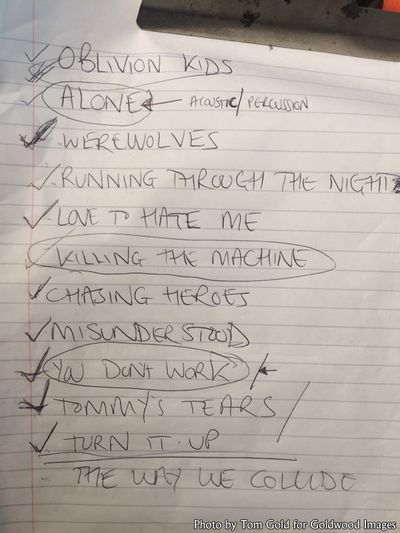 OBLIVION KIDS
ALONE ← ACOUSTIC/PERCUSSION
WEREWOLVES
RUNNING THROUGH THE NIGHT
LOVE TO HATE ME
KILLING THE MACHINE
CHASING HEROES
MISUNDERSTOOD
YOU DONT WORK
TOMMY'S TEARS
TURN IT UP
THE WAY WE COLLIDE
Photo by Tom Gold for Goldwood Images